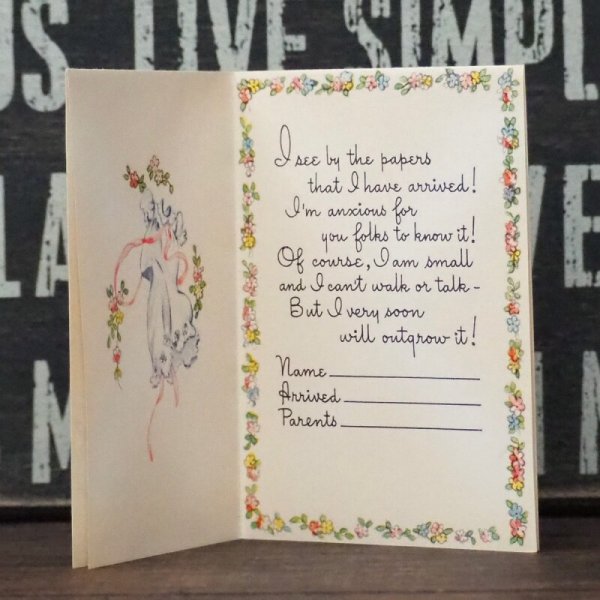 US LIVE SIMPL
LA
VE
M
IN
I see by the papers
that I have arrived!
I'm anxious for
you folks to know it!
Of course, I am small
and I can't walk or talk-
But I very soon
will outgrow it!
Name
Arrived
Parents